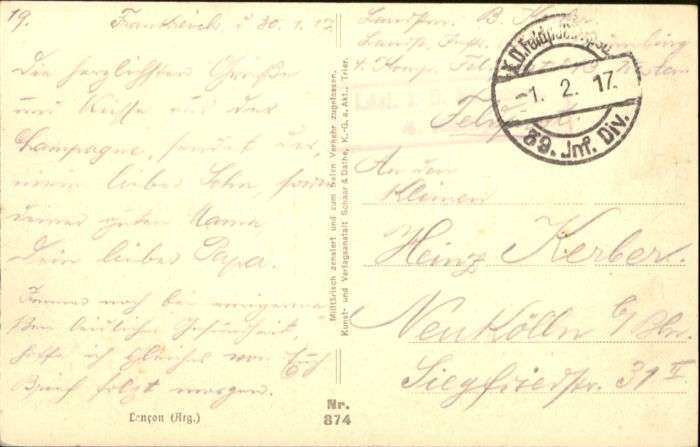 19. Frankreich d 30.1.17
Die herzlichsten Grüße
und Küsse aus der
Champagne, sendet dir,
mein lieber Sohn, sowie
deiner guten Mama
Dein lieber Papa.
Immer noch bei
Gesundheit,
hoffe ich gleiches von Euch
Brief folgt morgen.
Lançon (Arg.)
Militärisch zensiert und zum freien Verkehr zugelassen.
Kunst- und Verlagsanstalt Schaar & Dathe, K.-G. a. Akt., Trier.
Nr.
874
Landstm. B. Kerber
Landst. Inftr.
4. Komp.
Feldpost
K.D. Feldpostexped.
-1. 2. 17.
89. Inf. Div.
An den
kleinen
Heinz Kerber.
Neukölln b/Bln.
Siegfriedstr. 31 II